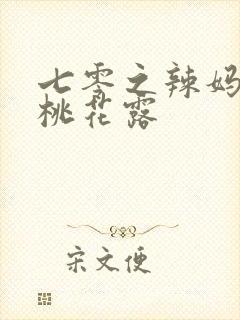 七零之辣妈
桃花露
宋文便